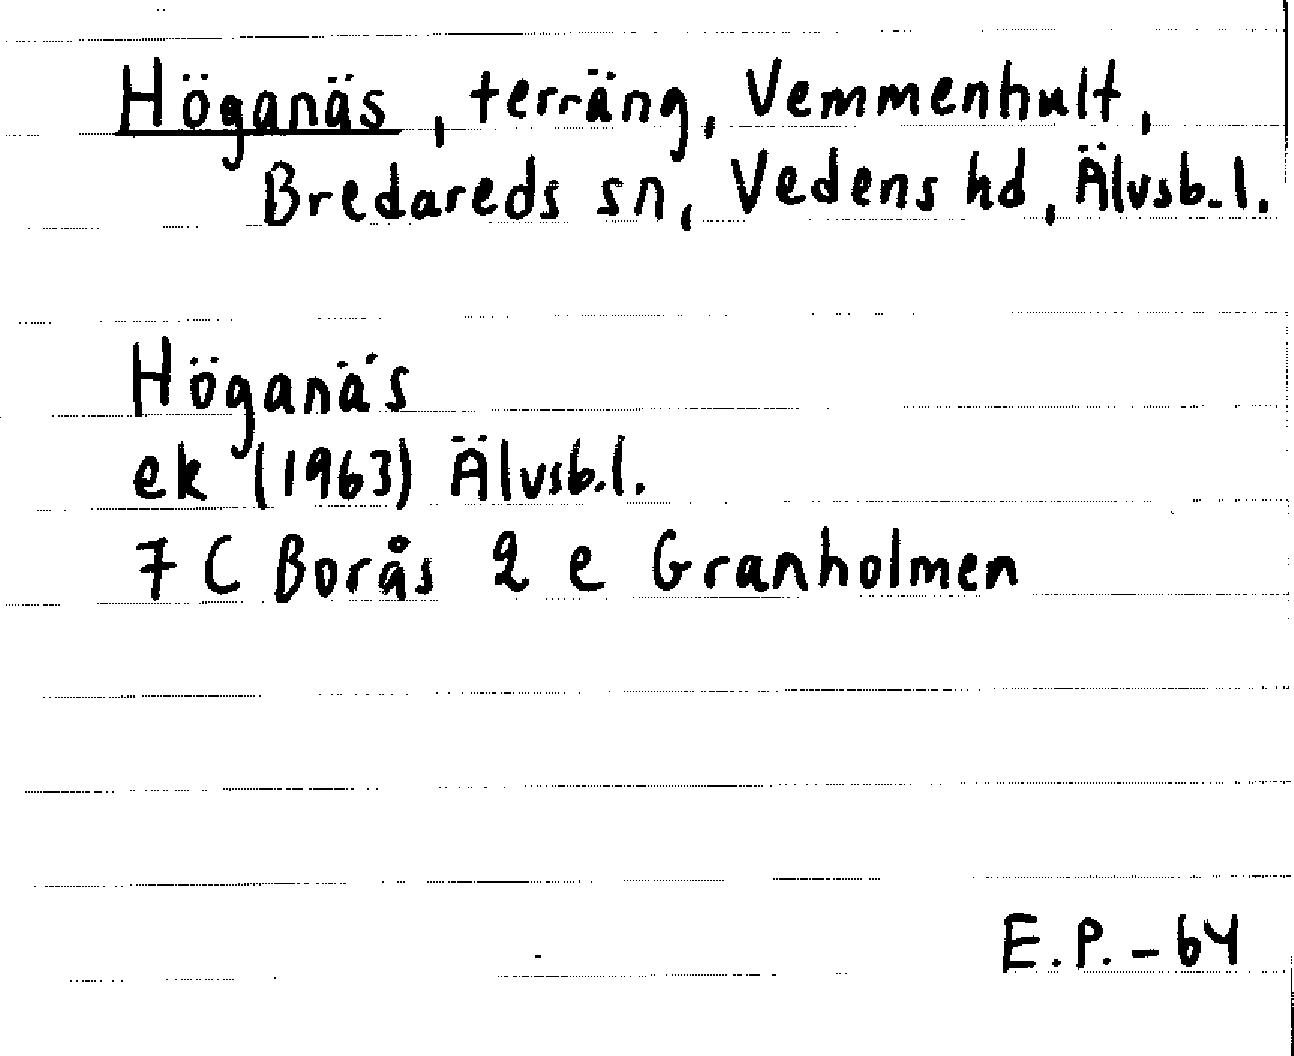 Höganäs, terräng, Vemmenhult,
Bredareds sn, Vedens hd, Älvsb.l.
Höganä's
ek (1963) Älvsb.l.
7 C Borås 2 e Granholmen
E.P. - 64